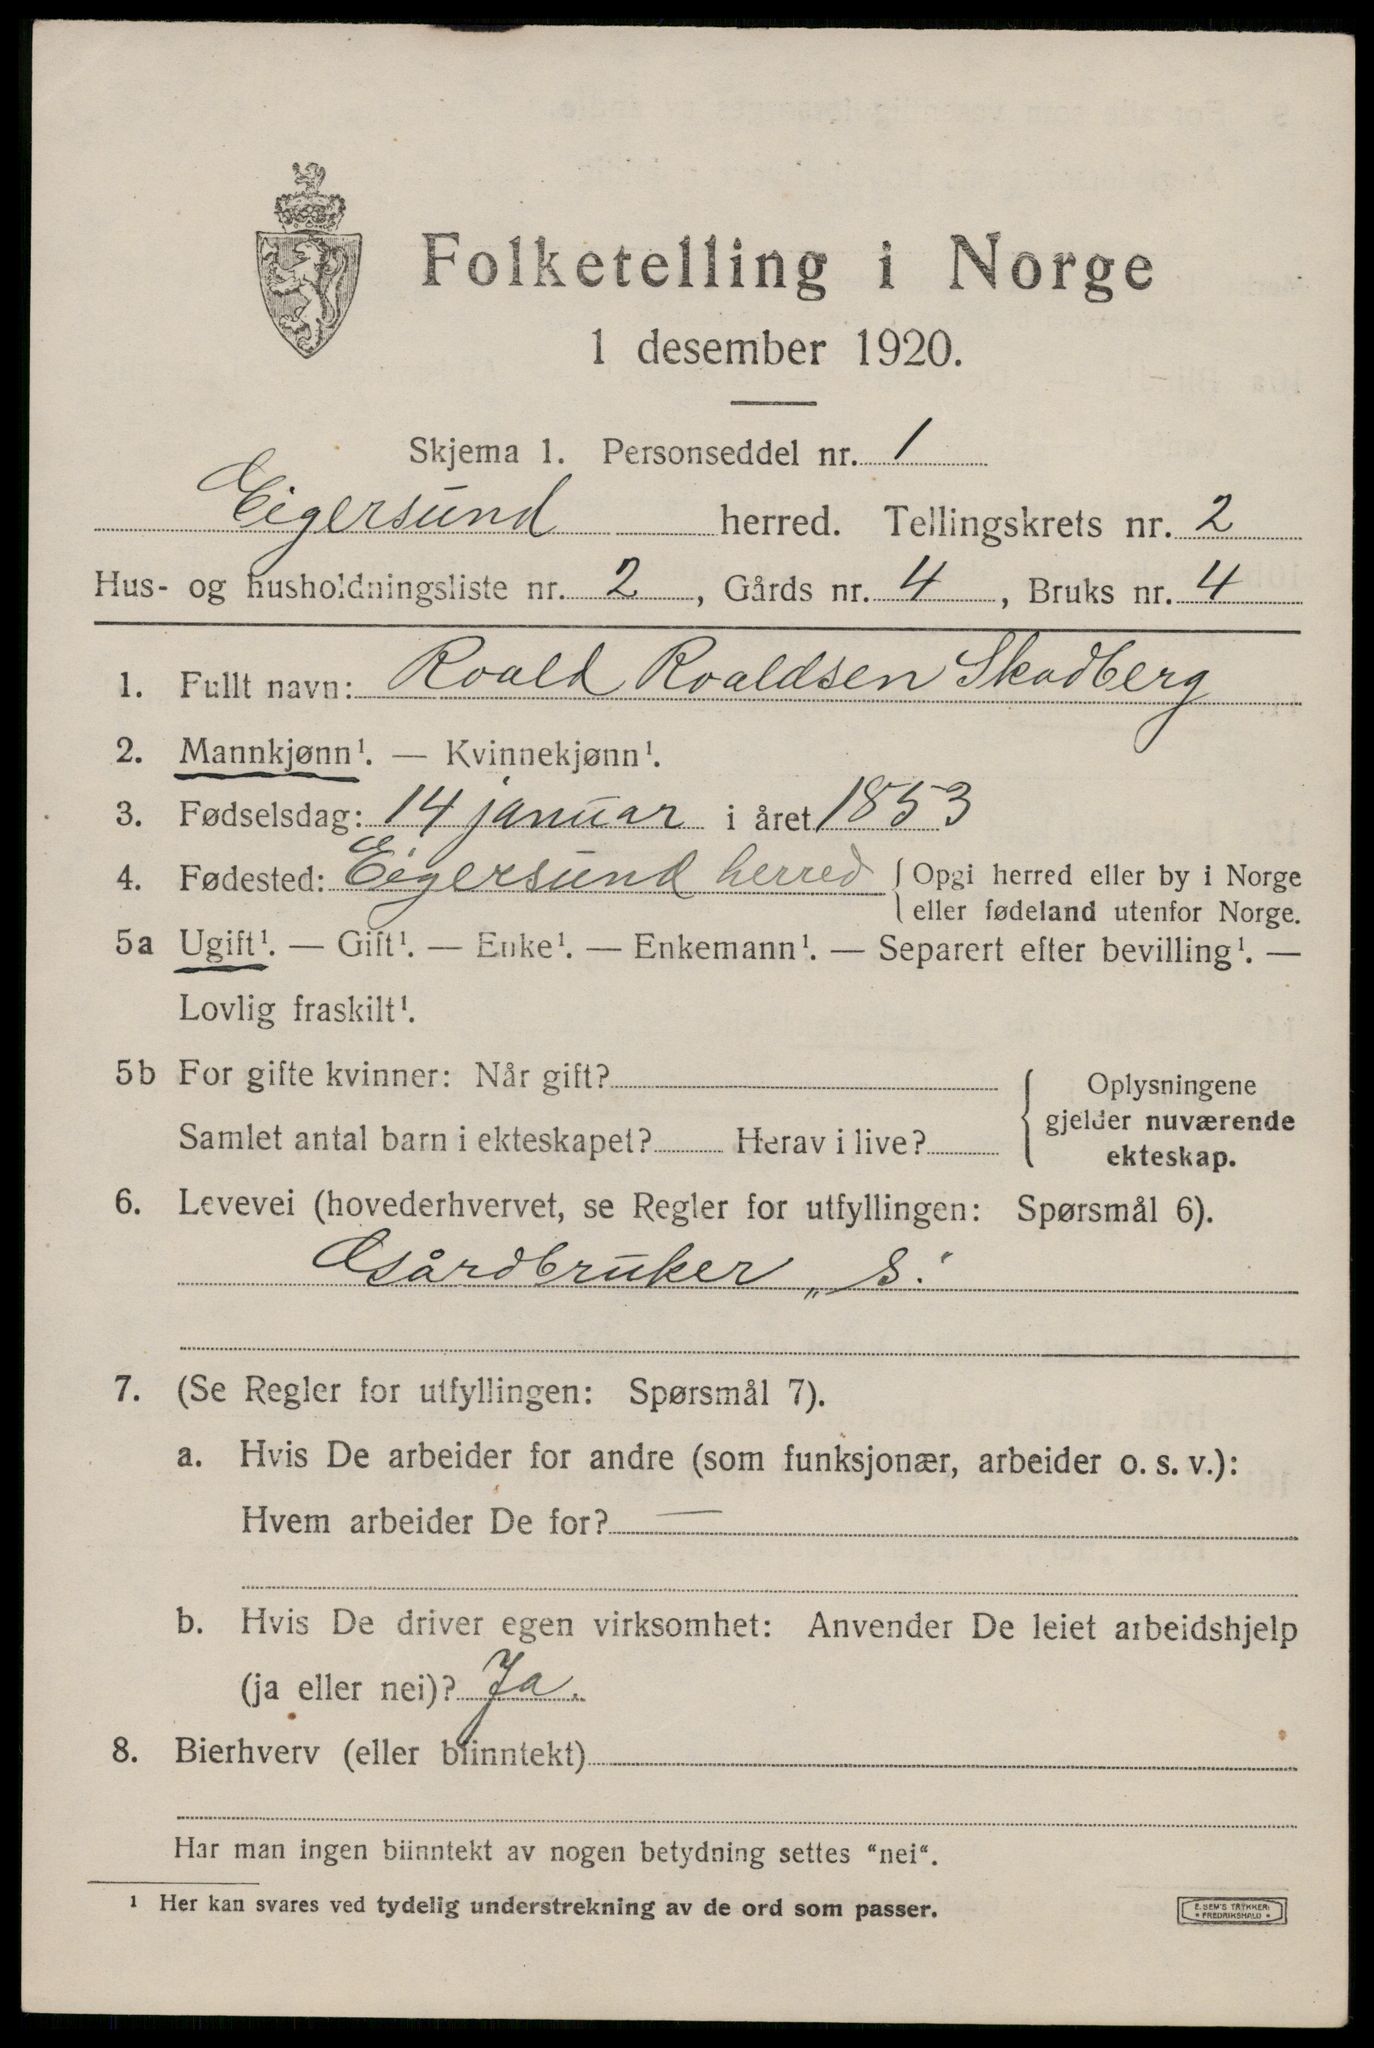 Folketelling i Norge
1 desember 1920.
Skjema 1. Personseddel nr. 1
Eigersund herred. Tellingskrets nr. 2
Hus- og husholdningsliste nr. 2, Gårds nr. 4, Bruks nr. 4
1. Fullt navn: Roald Roaldsen Skadberg
2. Mannkjønn¹. — Kvinnekjønn¹.
3. Fødselsdag: 14 januar i året 1853
4. Fødested: Eigersund herred { Opgi herred eller by i Norge
eller fødeland utenfor Norge.
5a Ugift¹. — Gift¹. — Enke¹. — Enkemann¹. — Separert efter bevilling¹. —
Lovlig fraskilt¹.
5b For gifte kvinner: Når gift?
Samlet antal barn i ekteskapet? Herav i live?
Oplysningene
gjelder nuværende
ekteskap.
6. Levevei (hovederhvervet, se Regler for utfyllingen: Spørsmål 6).
Gårdbruker „S.
7. (Se Regler for utfyllingen: Spørsmål 7).
a. Hvis De arbeider for andre (som funksjonær, arbeider o. s. v.):
Hvem arbeider De for? —
b. Hvis De driver egen virksomhet: Anvender De leiet arbeidshjelp
(ja eller nei)? Ja.
8. Bierhverv (eller biinntekt)
Har man ingen biinntekt av nogen betydning settes “nei“.
¹ Her kan svares ved tydelig understrekning av de ord som passer.
E. SEM'S TRYKKERI
• FREDRIKSHALD •